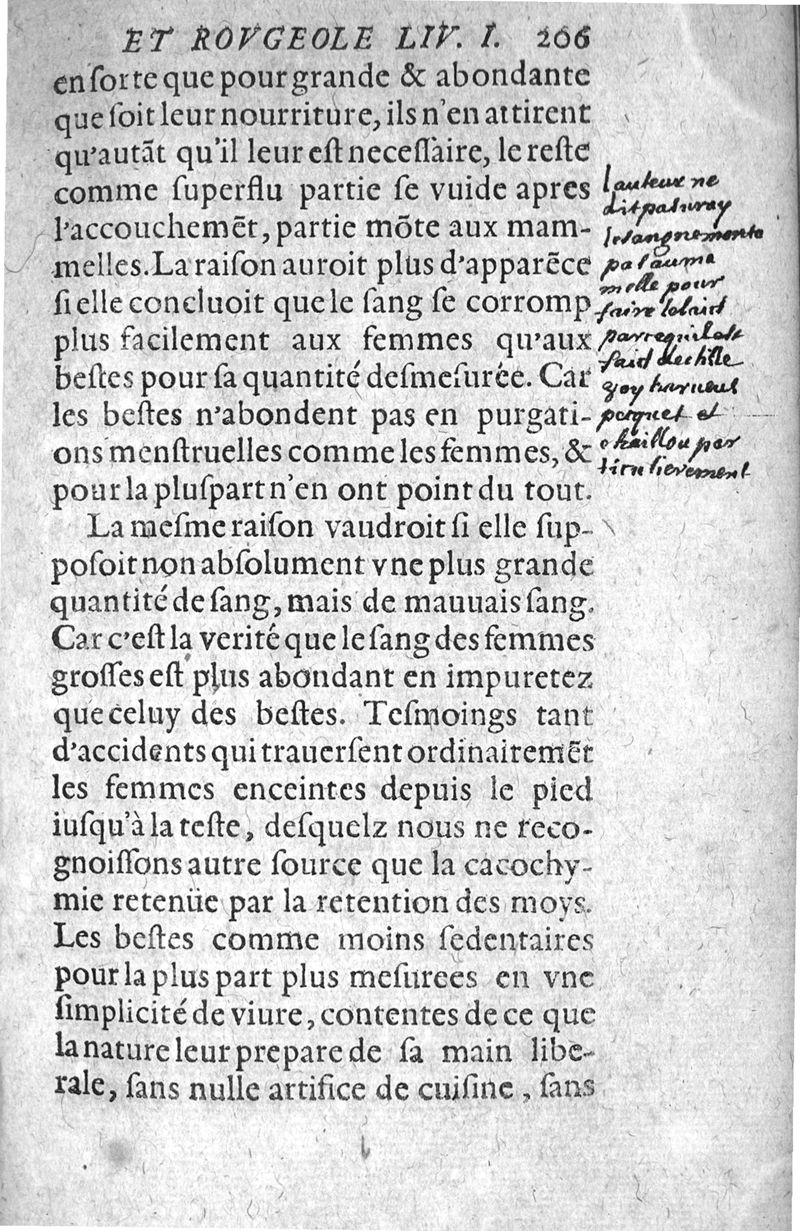 ET ROVGEOLE LIV. I. 206
en ſorte que pour grande & abondante
que ſoit leur nourriture, ils n'en attirent
qu'autãt qu'il leur eſt neceſſaire, le reſte
comme ſuperflu partie ſe vuide apres
l'accouchemẽt, partie mõte aux mam-
melles. La raiſon auroit plus d'apparẽce
ſi elle concluoit que le ſang ſe corromp
plus facilement aux femmes qu'aux
beſtes pour ſa quantité deſmeſurée. Car
les beſtes n'abondent pas en purgati-
ons menſtruelles comme les femmes, &
pour la pluſpart n'en ont point du tout.
La meſme raiſon vaudroit ſi elle ſup-
poſoit non abſolument vne plus grande
quantité de ſang, mais de mauuais ſang.
Car c'eſt la verité que le ſang des femmes
groſſes eſt plus abondant en impuretez
que celuy des beſtes. Teſmoings tant
d'accidents qui trauerſent ordinairemẽt
les femmes enceintes depuis le pied
iuſqu'à la teſte, deſquelz nous ne reco-
gnoiſſons autre ſource que la cacochy-
mie retenüe par la retention des moys.
Les beſtes comme moins ſedentaires
pour la plus part plus meſurees en vne
ſimplicité de viure, contentes de ce que
la nature leur prepare de ſa main libe-
rale, ſans nulle artifice de cuiſine, ſans
lauteur ne
dit pas vray
le sang ne monte
pas au ma
melle pour
faire le laict
par
faict de chile
harueus
pecquet et
par